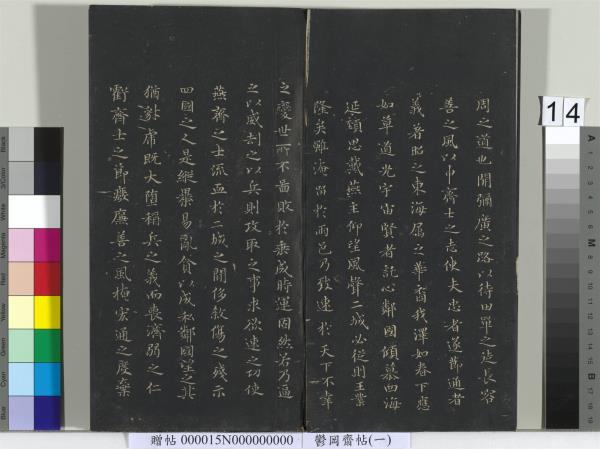 周之道也開彌廣之路以待田單之徒長容
善之風以申齊士之志使夫忠者遂節通者
義著昭之東海屬之華裔我澤如春下應
如草道光宇宙賢者託心鄰國傾慕四海
延頸思戴燕主仰望風聲二城必從則王業
隆矣雖淹留於兩邑乃致速於天下不幸
之變世所不圖敗於垂成時運固然若乃逼
之以威劫之以兵則攻取之事求欲速之功使
燕齊之士流血於二城之間侈殺傷之殘示
四國之人是縱暴易亂貪以成私鄰國望之其
猶豺虎既大墮稱兵之義而喪濟弱之仁
虧齊士之節廢廉善之風掩宏通之度棄
14
贈帖 000015N000000000
鬱岡齋帖(一)
Black
3/Color
White
Magenta
Red
Yellow
Green
Cyan
Blue
A
1
2
3
4
5
6
M
8
9
10
11
12
13
14
15
B
17
18
19